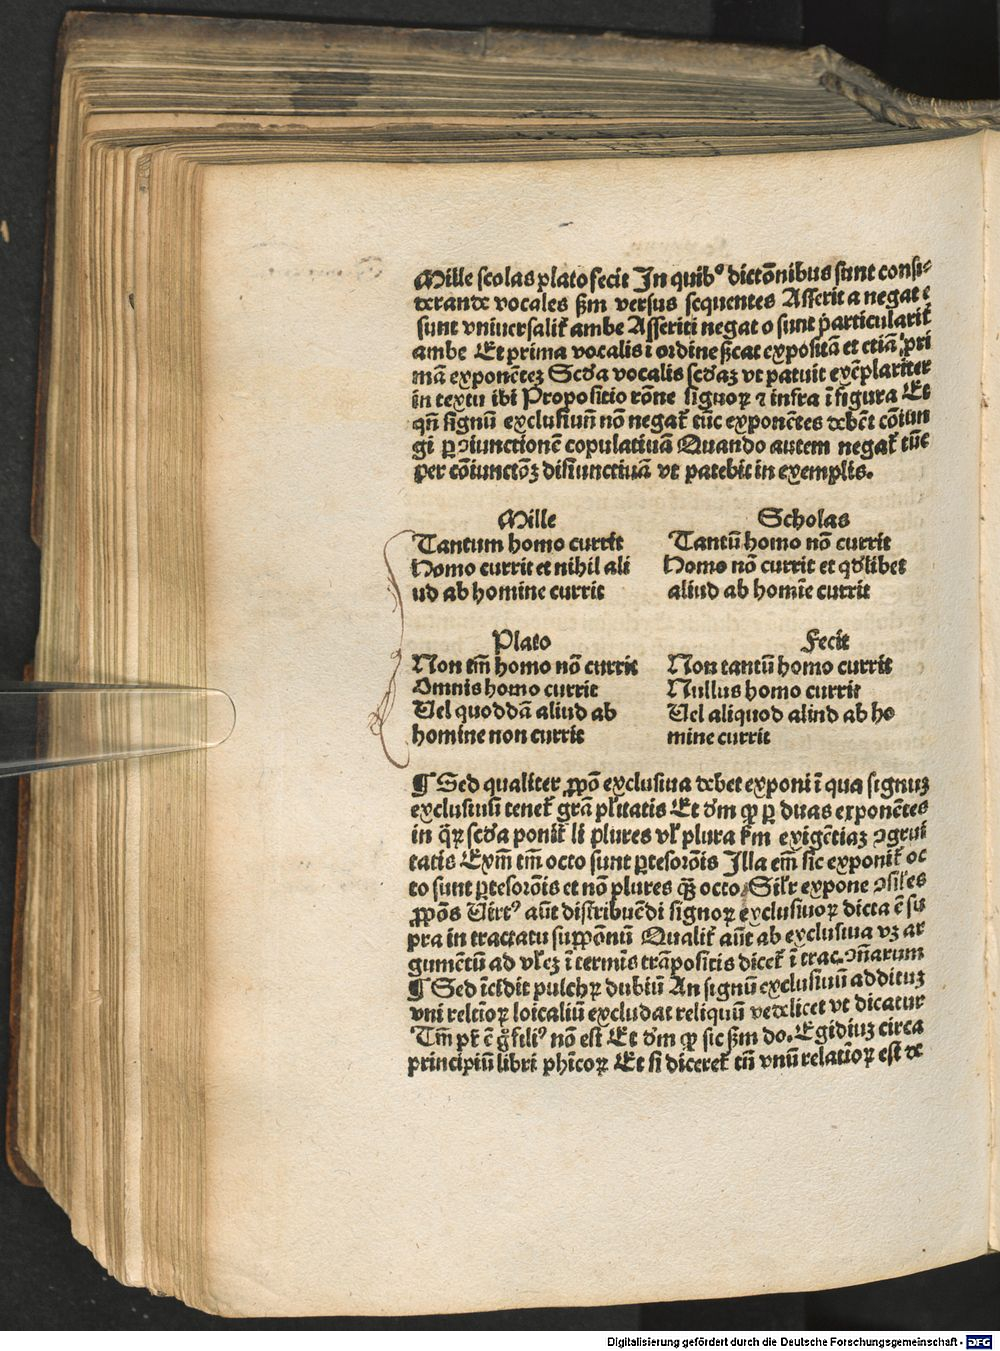 Mille scolas plato fecit In quibꝰ dictōnibus sunt consi-
derande vocales ẞm versus sequentes Asserit a negat e
sunt vniuersalit̃ ambe Asserit i negat o sunt ꝑticularit̃
ambe Et prima vocalis ī ordine ẞcat expositā et etiā pri
mā exponētez Scđa vocalis scđaz vt patuit exēplariter
in textu ibi Propositio rōne signoꝝ ⁊ infra ī figura Et
qñ signū exclusiuū nō negat̃ tūc exponētes debēt cōiun
gi ꝑ ꝯiunctionē copulatiuā Quando autem negat̃ tūc
per cōiunctōꝫ disiunctiuā vt patebit in exemplis.
Mille
Tantum homo currit
Homo currit et nihil ali
ud ab homine currit
Scholas
Tantū homo nō currit
Homo nō currit et qđlibet
aliud ab homīe currit
Plato
Non tm̄ homo nō currit
Omnis homo currit
Uel quoddā aliud ab
homine non currit
Fecit
Non tantū homo currit
Nullus homo currit
Uel aliquod aliud ab ho
mine currit
¶ Sed qualiter ꝓpō exclusiua debet exponi ī qua signuꝫ
exclusiuū tenet̃ grā pl̃itatis Et đm ꝙ ꝑ duas exponētes
in q̃ꝝ scđa ponit̃ li plures vl̃ plura ẞm exigētiaꝫ ꝯgrui
tatis Exm̄ tm̄ octo sunt ꝑtes orōis Illa em̄ sic exponit̃ oc
to sunt ꝑtes orōis et nō plures q̃ꝫ octo Sil̃r expone ꝯsil̃es
ꝓpōs Uirtꝰ aūt distribuēdi signoꝝ exclusiuoꝝ dicta ē su
pra in tractatu suppōnū Qualit̃ aūt ab exclusiua vꝫ ar
gumētū ad vl̃eꝫ ī termis trāspositis dicet̃ ī trac. ꝯñarum
¶ Sed īcĩdit pulchꝝ dubiū An signū exclusiuū additū
vni relcīoꝝ loicaliū excludat reliquū vedelicet vt dicatur
Tm̄ pr̃ ē ꝗ̃ filiꝰ nō est Et đm ꝙ sic ẞm do. Egidiuꝫ circa
principiū libri phīcoꝝ Et si diceret̃ tñ vnū relatīoꝝ est de
Digitalisierung gefördert durch die Deutsche Forschungsgemeinschaft - DFG